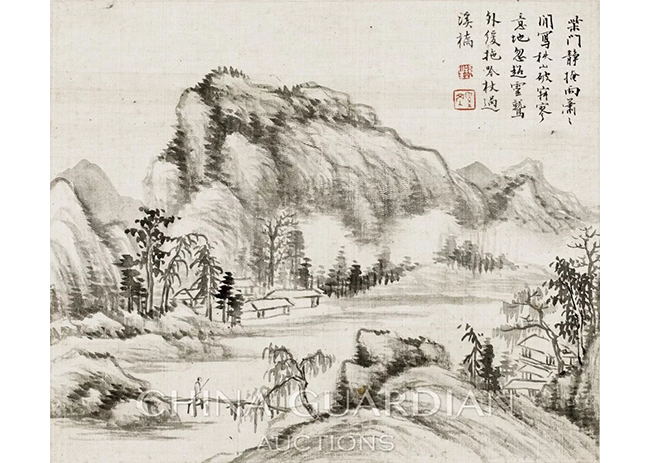 柴門靜掩雨瀟〻
閒寫秋山破寂寥
意地忽超雲鷲
外緩拖吟杖過
溪橋
CHINA GUARDIAN
AUCTIONS